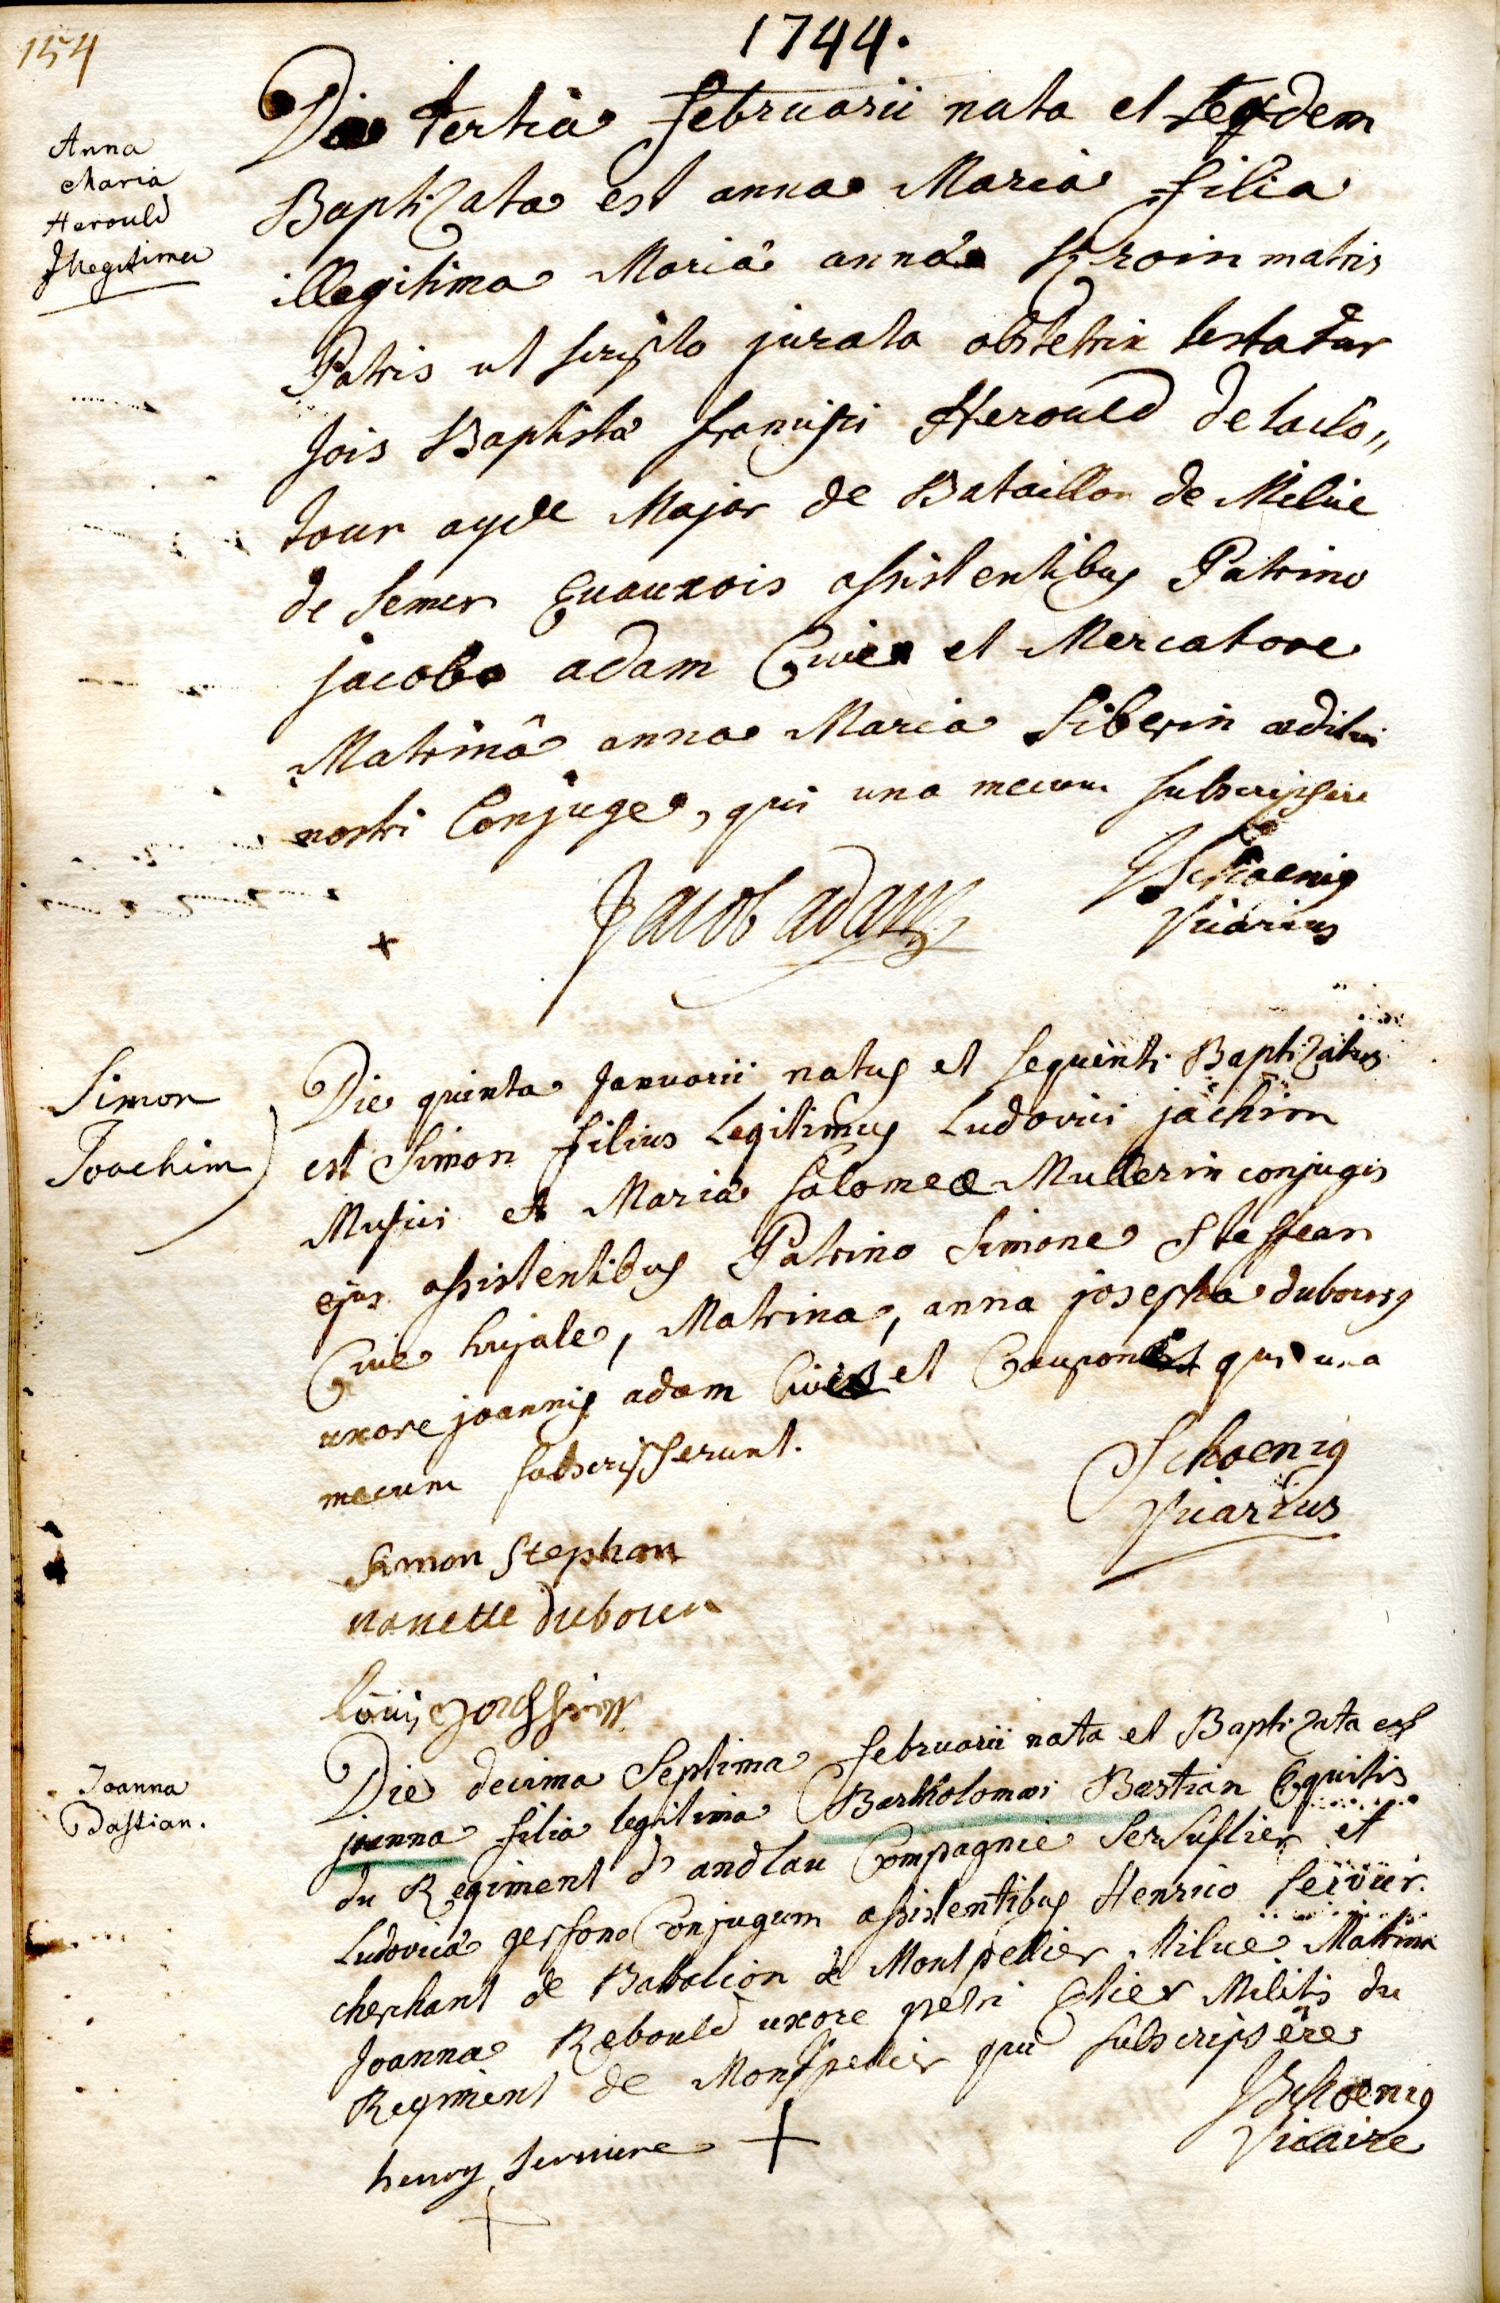 154
1744.
Anna
Maria
Herould
Illegitima
Die tertia februarii nata et
Baptizata est anna Maria filia
illegitima Mariæ annæ matris
Patris ut scripto jurata obstetrix testatur
Jois Baptistæ francisci Herould de laclo„
tour ayde Major de Bataillon de Milice
de Semur assistentibus Patrino
jacobo adam Cive et Mercatore
Matrinâ anna Maria Siberin æditui
nostri Conjuge, qui una mecum subscripsere
+
Jacob adam
Schoenig
Vicarius
Simon
Joachim
Die quinta Januarii natus et sequenti Baptizatus
est Simon filius Legitimus Ludovici jachim
Musici et Mariæ Salomeæ Mullerin conjugis
ejus assistentibus Patrino Simone Steffean
Cive hujate, Matrina, anna josepha dubourg
uxore joannis adam Civis et Cauponis qui una
mecum subscripserunt.
Schoenig
Vicarius
Simon Stephan
nanette dubour
Joanna
Bastian.
Die decima Septima februarii nata et Baptizata est
joanna filia legitima Bartholomæi Bastian Equitis
du Regiment d'andlau Compagnie et
Ludovicæ Conjugum assistentibus Henrico
de Batalion de Montpellier Milice Matrina
Joanna Rebould uxore petri Militis du
Regiment de Montpellier qui subscripsere
Schoenig
Vicaire
henry +
+